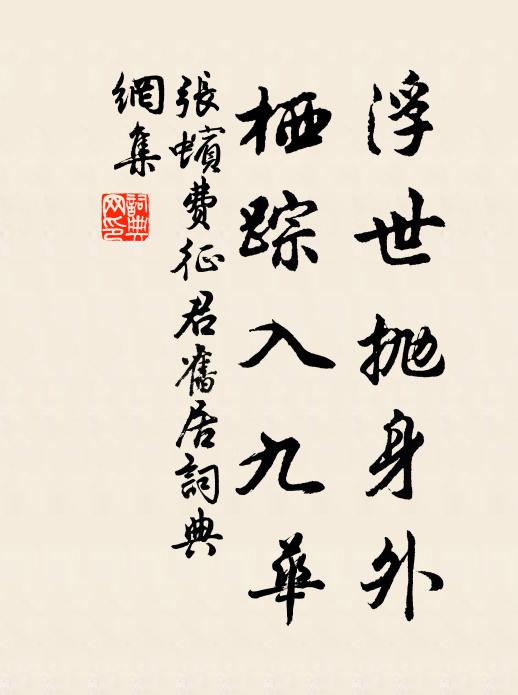 浮世抛身外
栖踪入九華
張蠙费征君舊居詞典
網集
詞典
网印